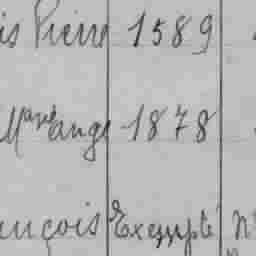 is Pierre 1589
Marie ange 1878
ançois Exempté N°